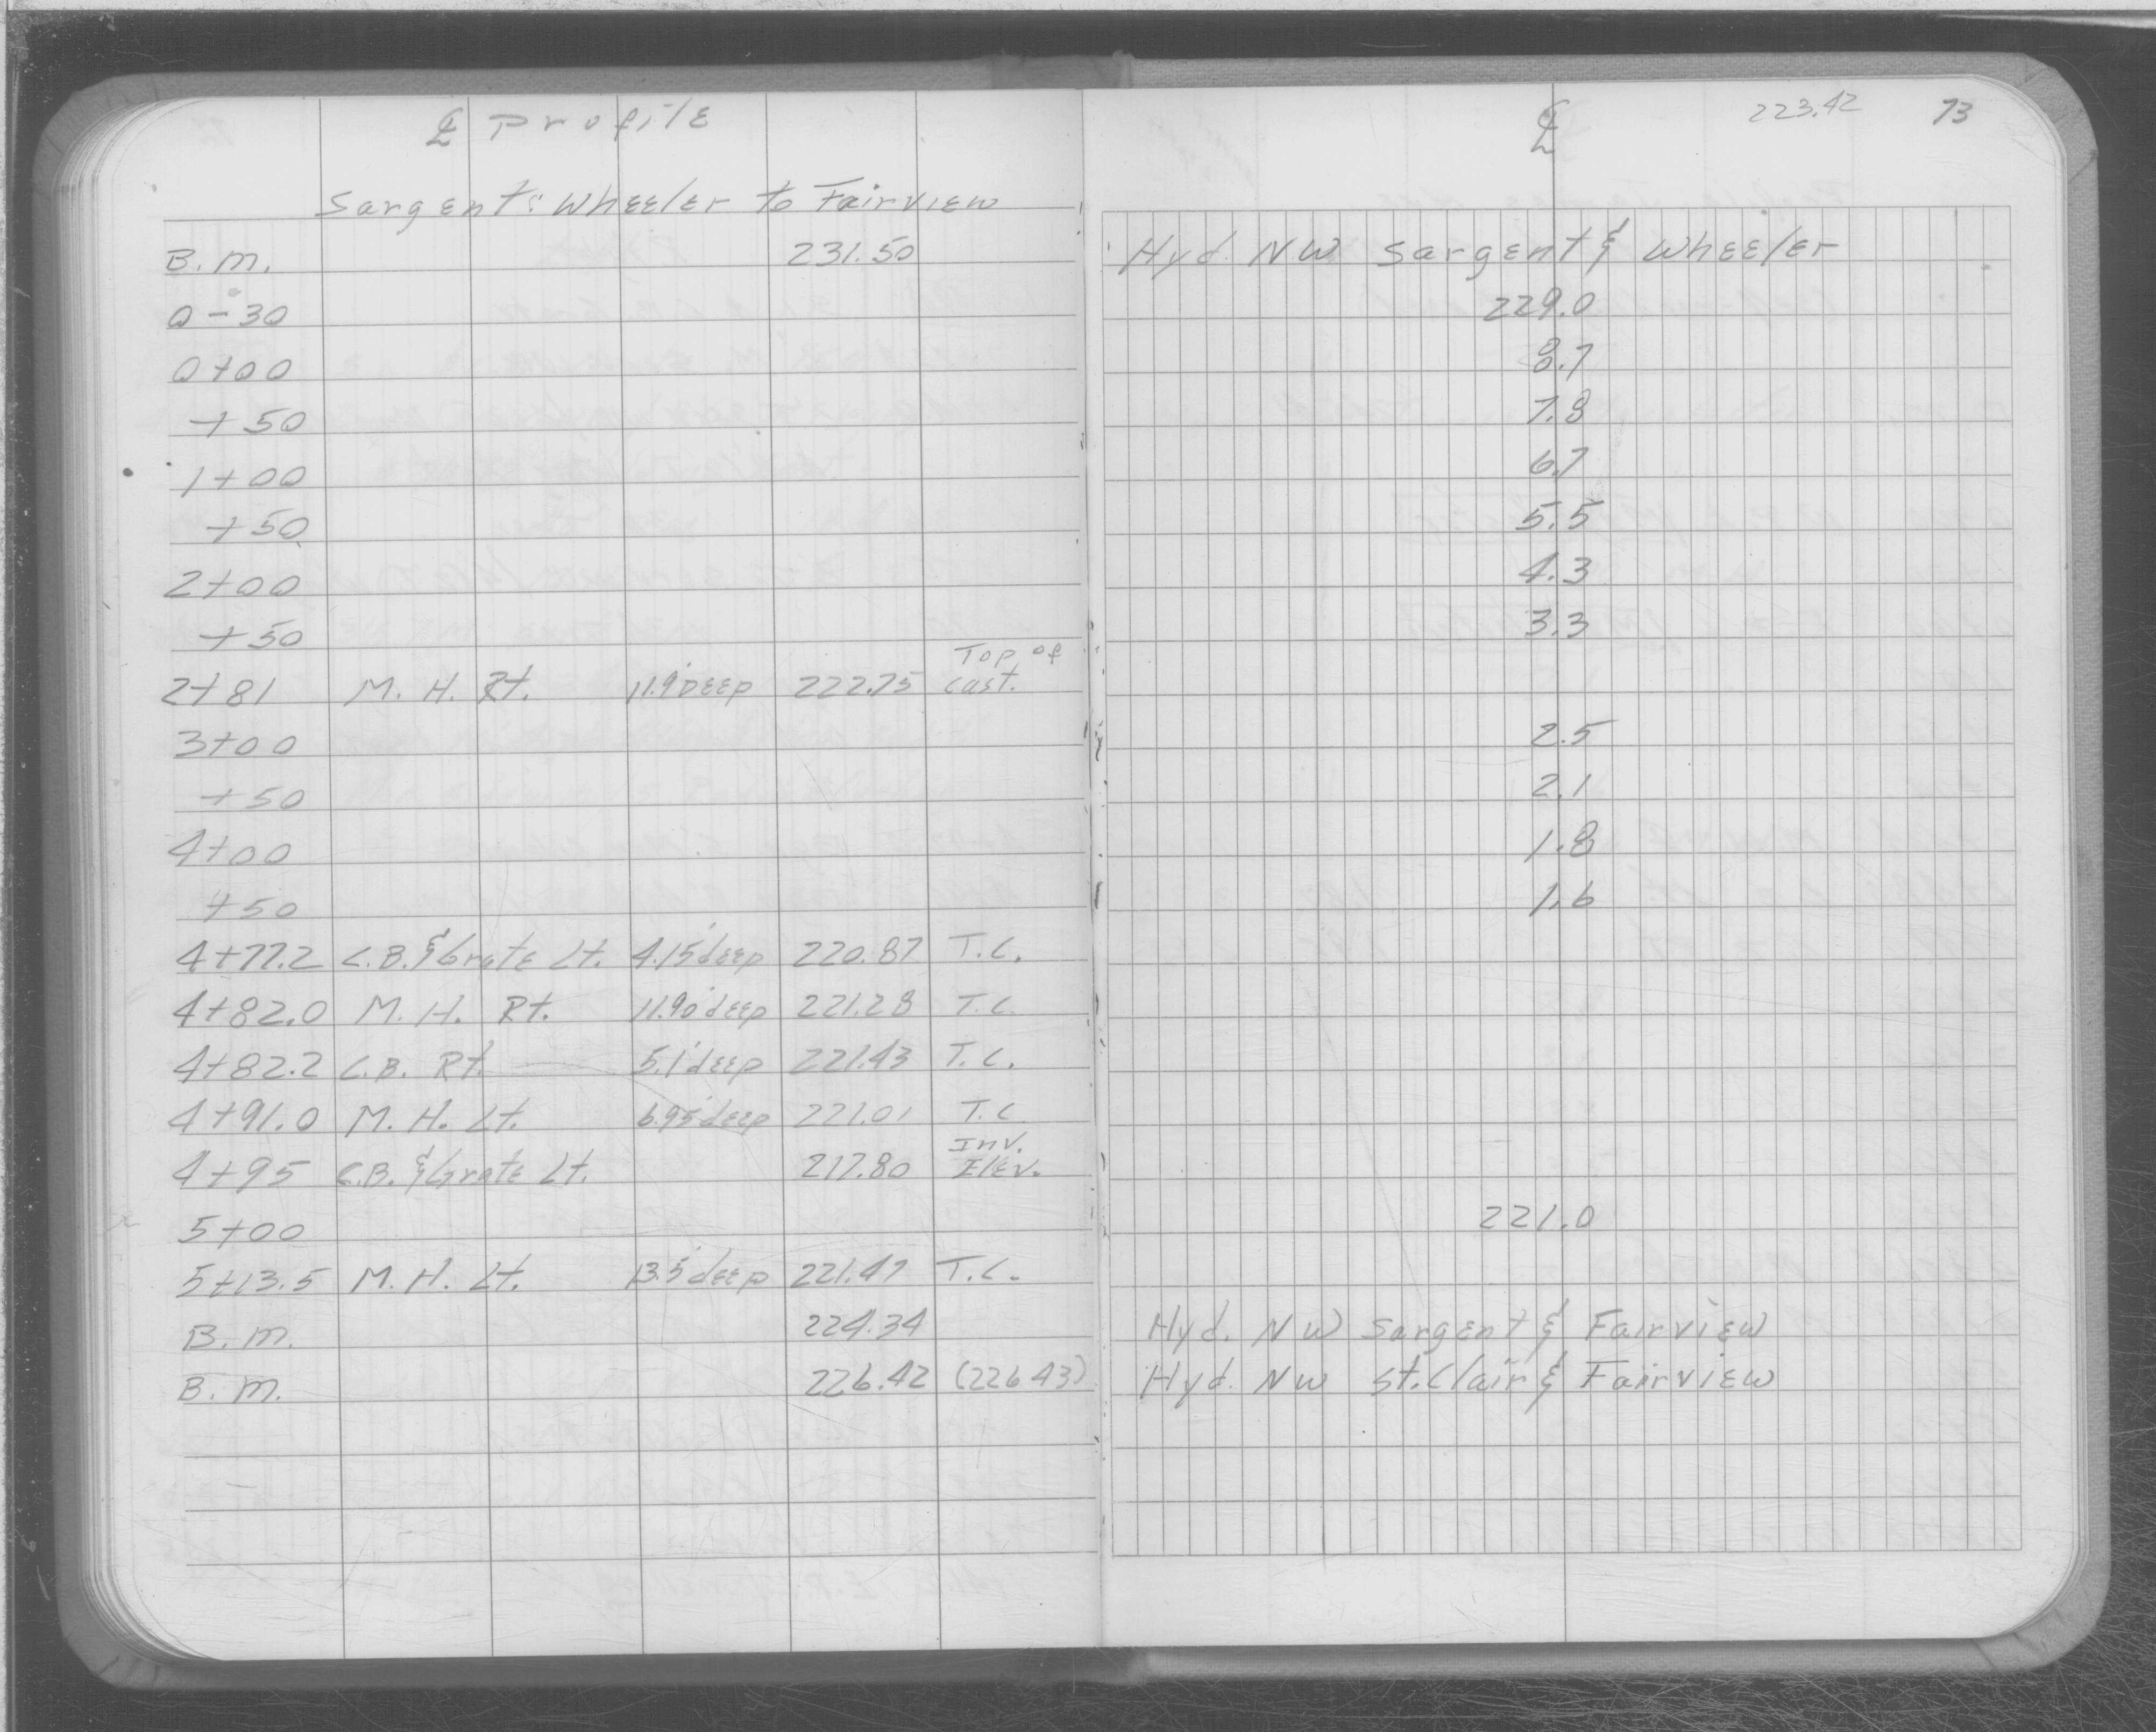 ℄ Profile
℄ 223.42 73
Sargent: Wheeler to Fairview
B.M. 231.50 Hyd. NW Sargent & Wheeler
0-30 229.0
0+00 8.7
+50 7.8
1+00 6.7
+50 5.5
2+00 4.3
+50 3.3
2+81 M.H. Rt. 11.9' Deep 222.75 Top of Cast.
3+00 2.5
+50 2.1
4+00 1.8
+50 1.6
4+77.2 C.B. & Grate Lt. 4.15' deep 220.87 T.C.
4+82.0 M.H. Rt. 11.90' deep 221.28 T.C.
4+82.2 C.B. Rt. 5.1' deep 221.43 T.C.
4+91.0 M.H. Lt. 6.95' deep 221.01 T.C
4+95 C.B. & Grate Lt. 217.80 Inv. Elev.
5+00 221.0
5+13.5 M.H. Lt. 13.5' deep 221.47 T.C.
B.M. 224.34 Hyd. NW Sargent & Fairview
B.M. 226.42 (226.43) Hyd. NW St. Clair & Fairview